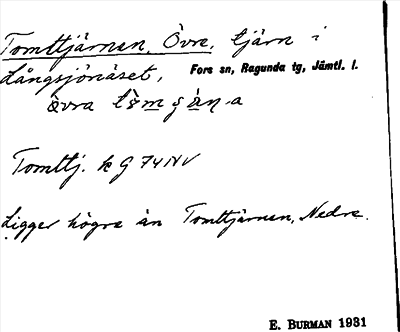 Tomttjärnen, Övre, tjärn i
Långsjönäset, Fors sn, Ragunda tg, Jämtl. l.
övra
Tomttj. k G 74 NV
Ligger högre än Tomttjärnen, Nedre.
E. BURMAN 1931